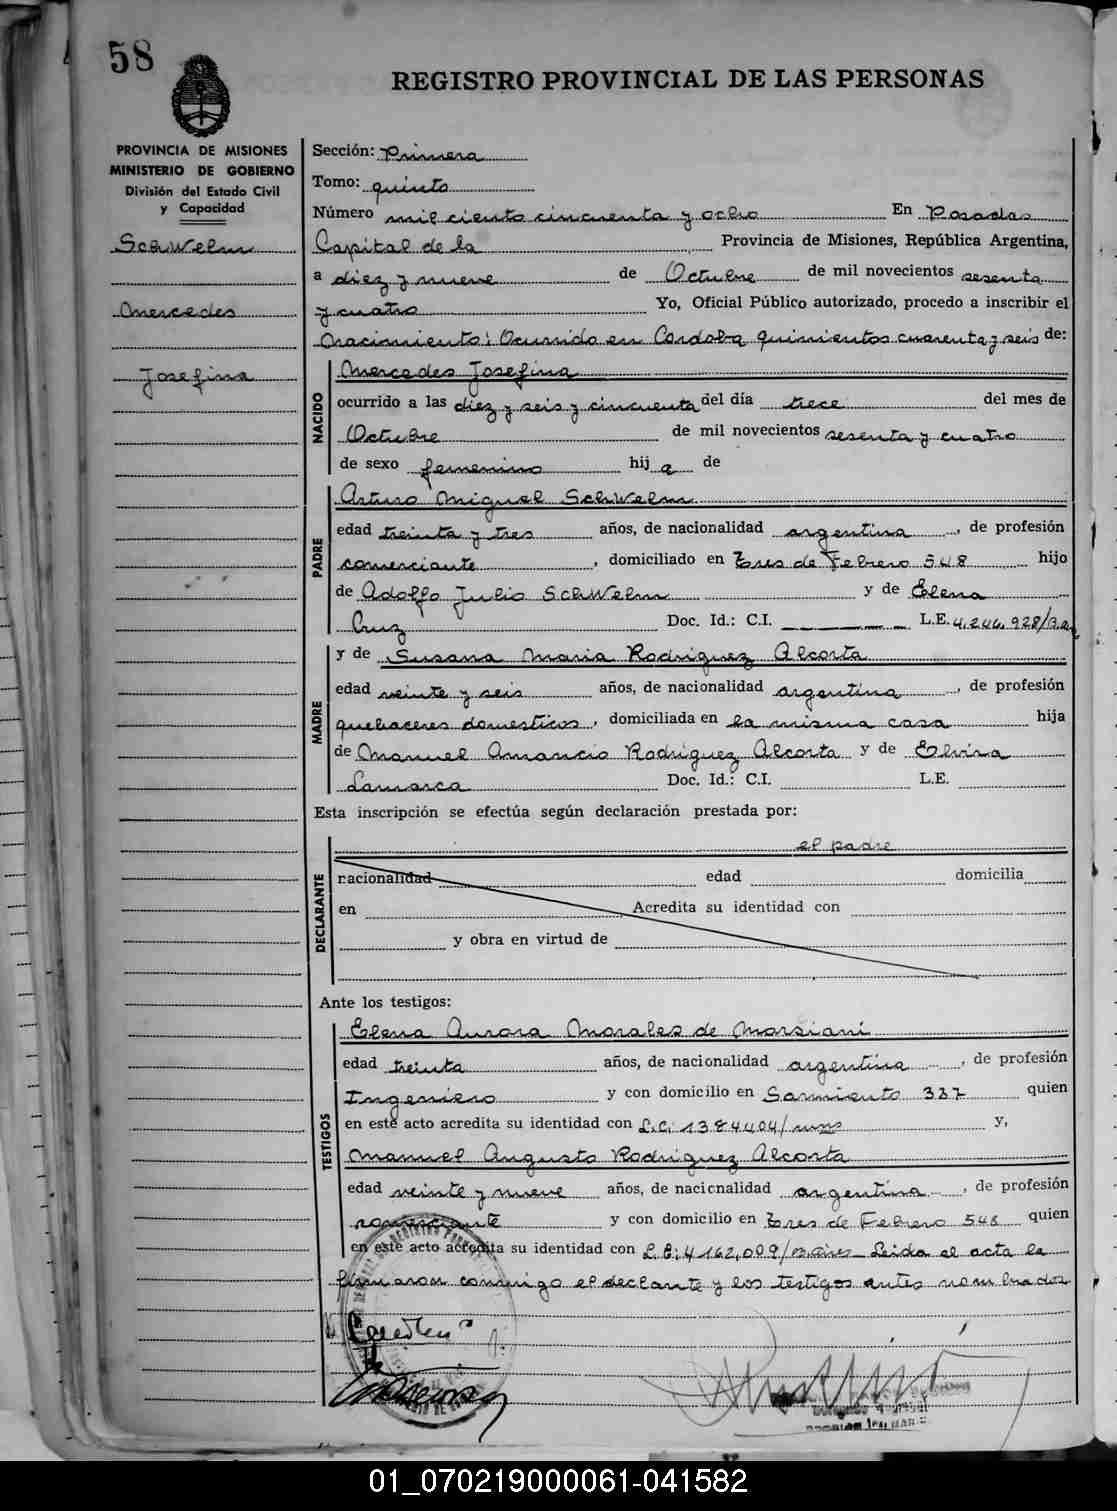 58
REGISTRO PROVINCIAL DE LAS PERSONAS
PROVINCIA DE MISIONES
MINISTERIO DE GOBIERNO
División del Estado Civil
y Capacidad
Schwelm
Mercedes
Josefina
Sección: Primera
Tomo: quinto
Número mil ciento cincuenta y ocho En Posadas
Capital de la Provincia de Misiones, República Argentina,
a diez y nueve de Octubre de mil novecientos sesenta
y cuatro Yo, Oficial Público autorizado, procedo a inscribir el
Nacimiento: Ocurrido en Cordoba quinientos cuarenta y seis de:
NACIDO
Mercedes Josefina
ocurrido a las diez y seis y cincuenta del día trece del mes de
Octubre de mil novecientos sesenta y cuatro
de sexo femenino hija de
PADRE
Arturo Miguel Schwelm
edad treinta y tres años, de nacionalidad argentina, de profesión
comerciante, domiciliado en Tres de Febrero 548 hijo
de Adolfo Julio Schwelm y de Elena
Cruz Doc. Id.: C.I. L.E. 4.244.928
MADRE
y de Susana Maria Rodriguez Alcorta
edad veinte y seis años, de nacionalidad argentina, de profesión
quehaceres domesticos, domiciliada en la misma casa hija
de Manuel Amancio Rodriguez Alcorta y de Elvira
Lamarca Doc. Id.: C.I. L.E.
Esta inscripción se efectúa según declaración prestada por:
DECLARANTE
el padre
nacionalidad edad domicilia
en Acredita su identidad con
y obra en virtud de
Ante los testigos:
TESTIGOS
Elena Aurora Morales de Marsiani
edad treinta años, de nacionalidad argentina, de profesión
Ingeniero y con domicilio en Sarmiento 337 quien
en este acto acredita su identidad con L.C. 1384404/mns y,
Manuel Augusto Rodriguez Alcorta
edad veinte y nueve años, de nacionalidad argentina, de profesión
comerciante y con domicilio en Tres de Febrero 548 quien
en este acto acredita su identidad con L.E. 4162.009/ Leida el acta la
firmaron conmigo el declante y los testigos antes nombrados
01_070219000061-041582